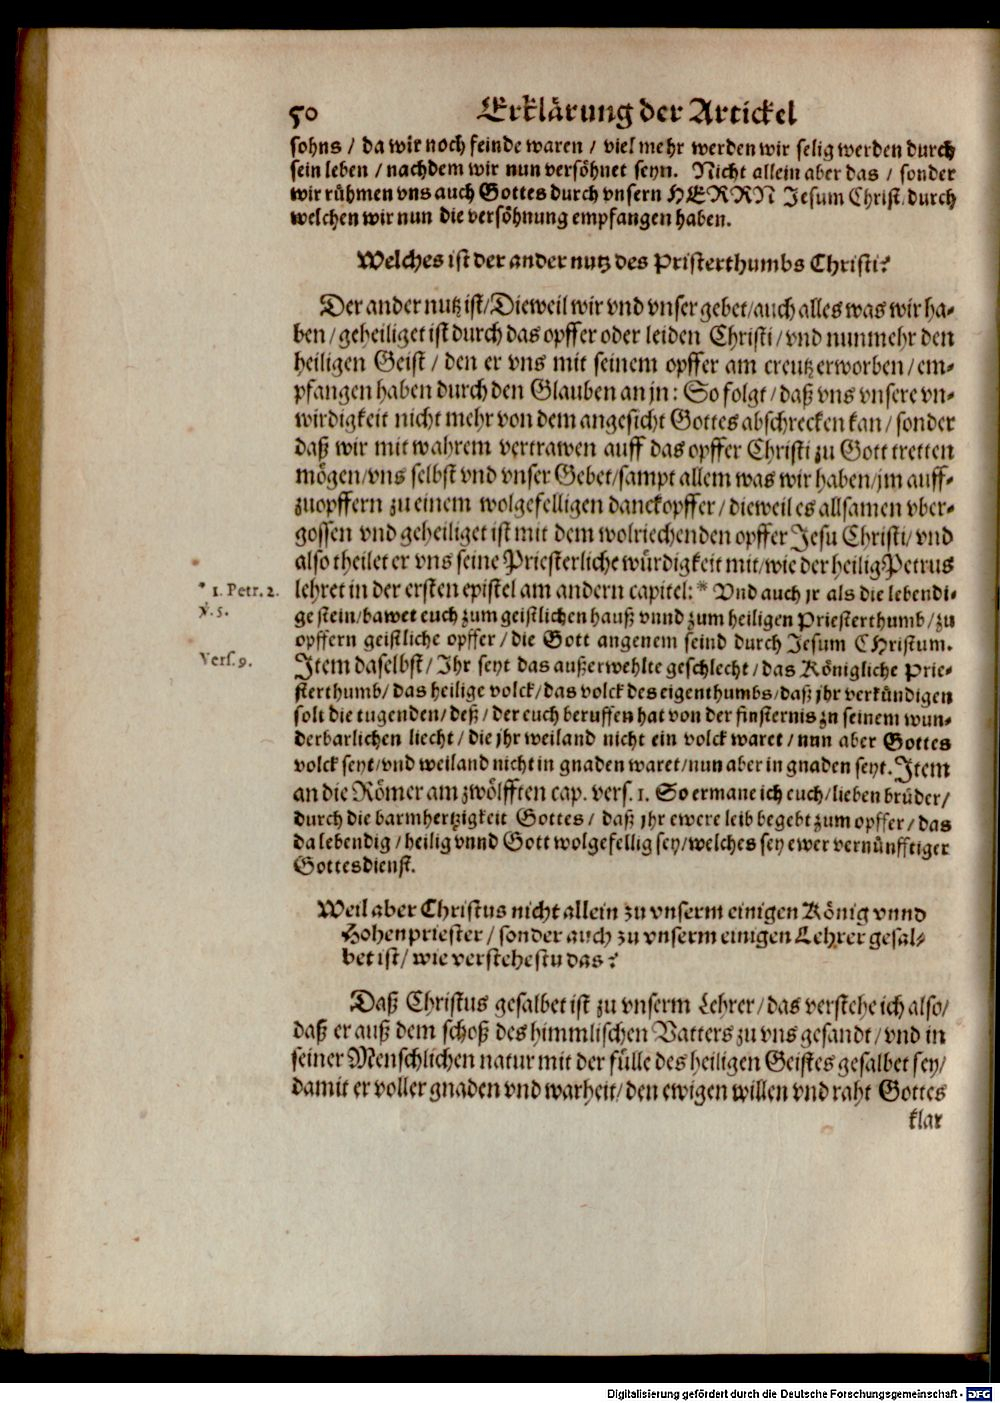 50 Erklärung der Artickel
sohns / da wir noch feinde waren / viel mehr werden wir selig werden durch
sein leben / nachdem wir nun versöhnet seyn. Nicht allein aber das / sonder
wir rühmen vns auch Gottes durch vnsern HERRN Jesum Christ / durch
welchen wir nun die versöhnung empfangen haben.
Welches ist der ander nutz des Pristerthumbs Christi?
Der ander nutz ist / Dieweil wir vnd vnser gebet / auch alles was wir ha-
ben / geheiliget ist durch das opffer oder leiden Christi / vnd nunmehr den
heiligen Geist / den er vns mit seinem opffer am creutz erworben / em-
pfangen haben durch den Glauben an jn: So folgt / daß vns vnsere vn-
wirdigkeit nicht mehr von dem angesicht Gottes abschrecken kan / sonder
daß wir mit wahrem vertrawen auff das opffer Christi zu Gott tretten
mögen / vns selbst vnd vnser Gebet / sampt allem was wir haben / jm auff-
zuopffern zu einem wolgefelligen danckopffer / dieweil es allsamen vber-
gossen vnd geheiliget ist mit dem wolriechenden opffer Jesu Christi / vnd
also theilet er vns seine Priesterliche würdigkeit mit / wie der heilig Petrus
* 1. Petr. 2. lehret in der ersten epistel am andern capitel: * Vnd auch jr als die lebendi-
v. 5. ge stein / bawet euch zum geistlichen hauß vnnd zum heiligen Priesterthumb / zu
opffern geistliche opffer / die Gott angenem seind durch Jesum CHristum.
Vers. 9. Item daselbst / Ihr seyt das außerwehlte geschlecht / das Königliche Prie-
sterthumb / das heilige volck / das volck des eigenthumbs / daß jhr verkündigen
solt die tugenden / deß / der euch beruffen hat von der finsternis zu seinem wun-
derbarlichen liecht / die jhr weiland nicht ein volck waret / nun aber Gottes
volck seyt / vnd weiland nicht in gnaden waret / nun aber in gnaden seyt. Item
an die Römer am zwölfften cap. vers. 1. So ermane ich euch / lieben brüder /
durch die barmhertzigkeit Gottes / daß jhr ewere leib begebt zum opffer / das
da lebendig / heilig vnnd Gott wolgefellig sey / welches sey ewer vernünfftiger
Gottesdienst.
Weil aber Christus nicht allein zu vnserm einigen König vnnd
Hohenpriester / sonder auch zu vnserm einigen Lehrer gesal-
bet ist / wie verstehestu das?
Daß Christus gesalbet ist zu vnserm Lehrer / das verstehe ich also /
daß er auß dem schoß des himmlischen Vatters zu vns gesandt / vnd in
seiner Menschlichen natur mit der fülle des heiligen Geistes gesalbet sey /
damit er voller gnaden vnd warheit / den ewigen willen vnd raht Gottes
klar
Digitalisierung gefördert durch die Deutsche Forschungsgemeinschaft - DFG